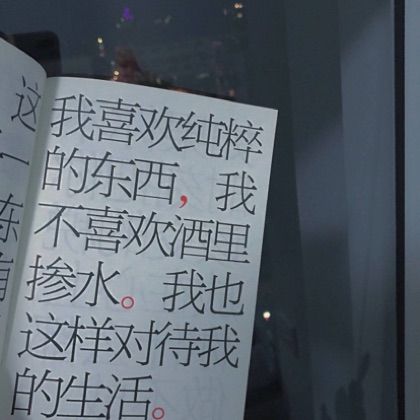 我喜欢纯粹
的东西，我
不喜欢酒里
掺水。我也
这样对待我
的生活。